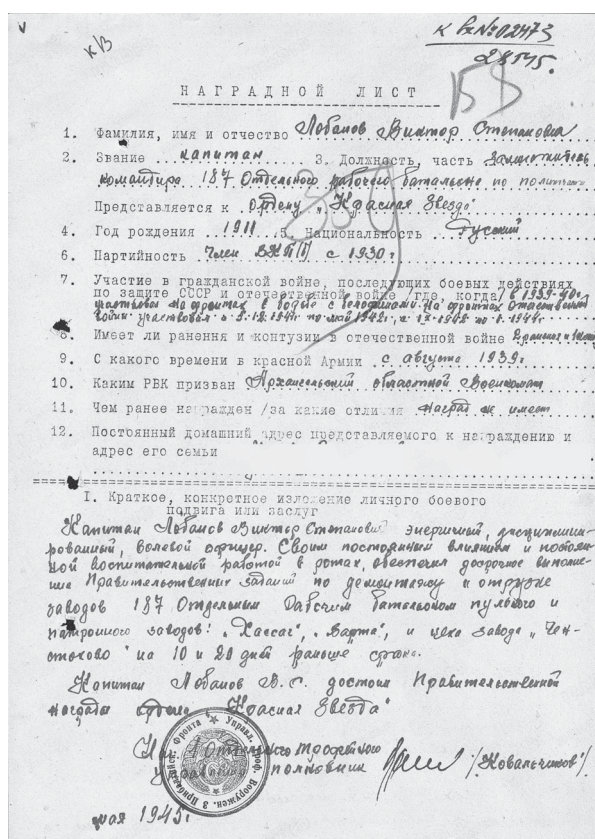 к вх № 02473
28.5.45.
к/з
НАГРАДНОЙ ЛИСТ
1. Фамилия, имя и отчество Лобанов Виктор Степанович
2. Звание капитан 3. Должность, часть Заместитель
командира 187 Отдельного рабочего батальона по политчасти
Представляется к ордену „Красная Звезда"
4. Год рождения 1911 5. Национальность Русский
6. Партийность Член ВКП(б) с 1930 г
7. Участие в гражданской войне, последующих боевых действиях
по защите СССР и отечественной войне /где, когда/ в 1939-40г.
участвовал на фронтах в войне с белофинами. На фронтах Отечественной
войны участвовал с
8. Имеет ли ранения и контузии в отечественной войне
9. С какого времени в красной Армии с августа 1939 г.
10. Каким РВК призван Архангельский областной Военкомат
11. Чем ранее награжден /за какие отличия наград не имеет
12. Постоянный домашний адрес представляемого к награждению и
адрес его семьи
I. Краткое, конкретное изложение личного боевого
подвига или заслуг
Капитан Лобанов Виктор Степанович энергичный, дисциплини-
рованный, волевой офицер. Своим постоянным влиянием и
воспитательной работой в ротах, обеспечил досрочное выполне-
ние Правительственных заданий по демонтажу и отгрузке
заводов 187 Отдельным Рабочим батальоном пульного и
патронного заводов: „Хассаг", „Варта", и цеха завода „Чен-
стохово" на 10 и 20 дней раньше срока.
Капитан Лобанов В.С. достоин Правительственной
награды ордена „Красная Звезда"
Нач. Отдельного Трофейного
управления полковник /Ковальчиков/
мая 1945 г.